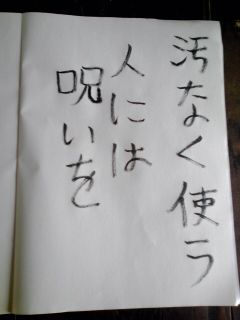 汚なく使う
人には
呪いを